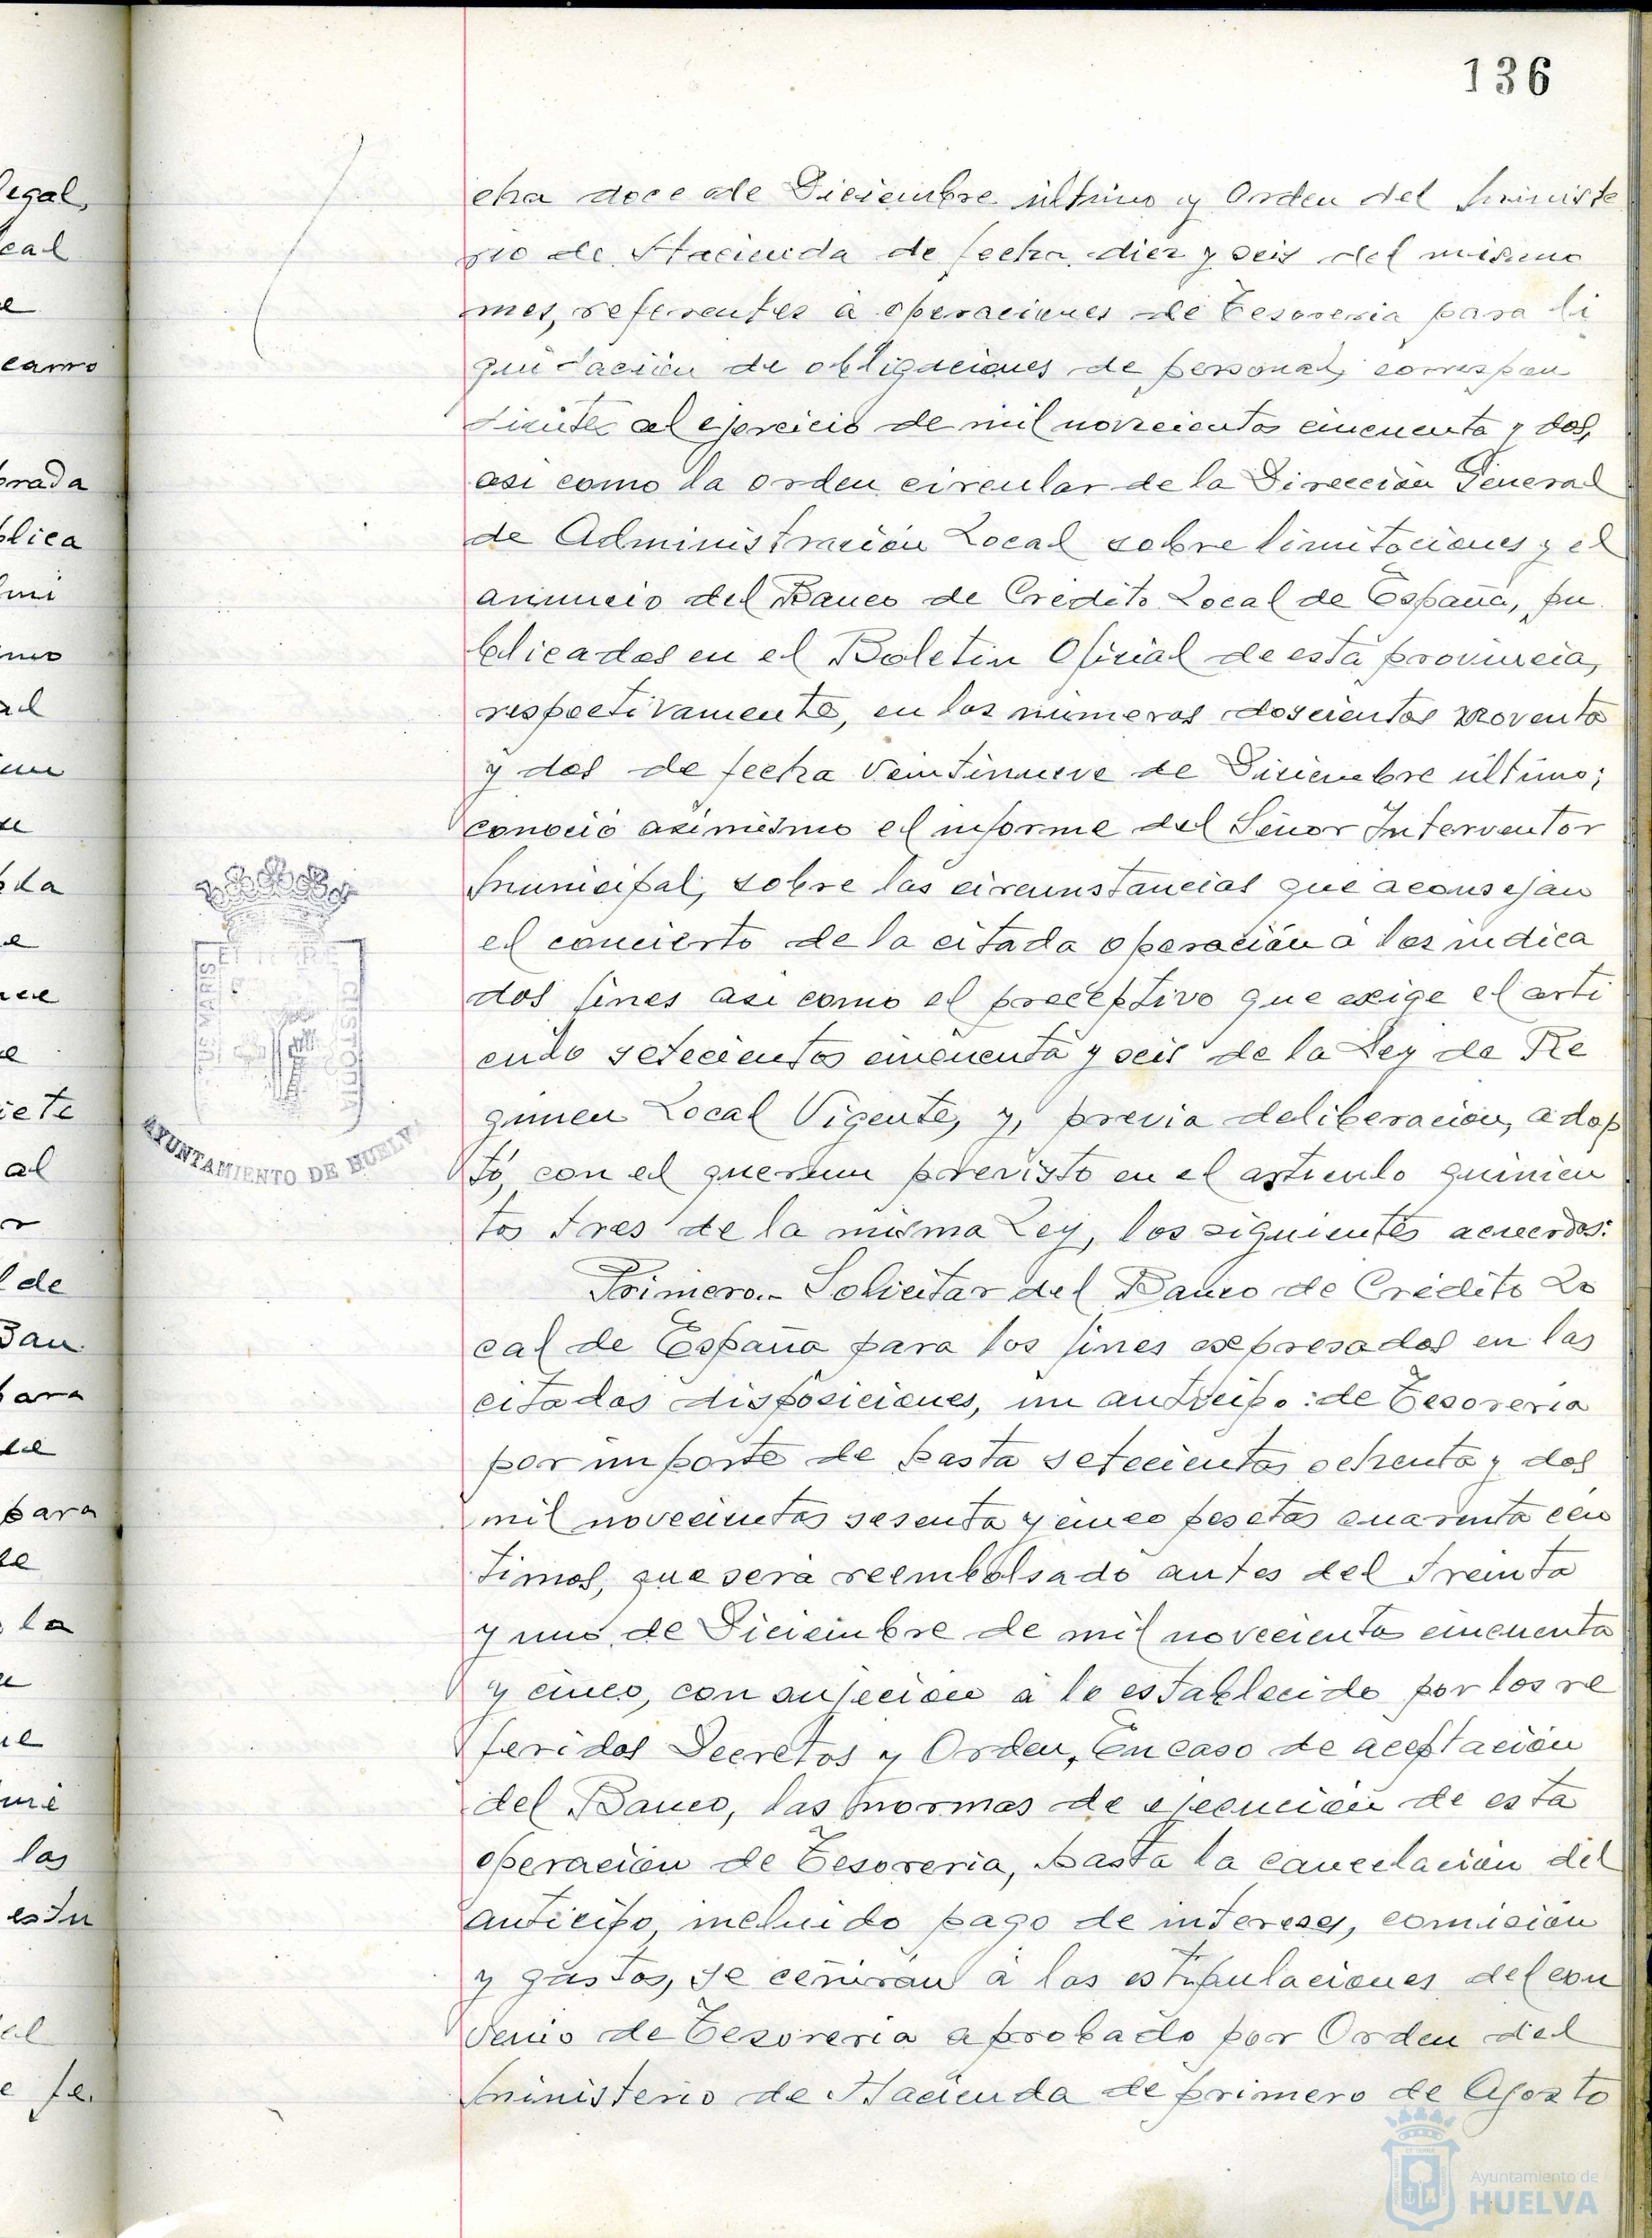 136
cha doce de Diciembre último y Orden del Ministe
rio de Hacienda de fecha diez y seis del mismo
mes, referentes á operaciones de Tesoreria para li
quidación de obligaciones de personal, correspon
dientes al ejercicio de mil novecientos cincuenta y dos,
asi como la orden circular de la Dirección General
de Administración Local sobre limitaciones y el
anuncio del Banco de Credito Local de España, pu
blicados en el Boletin Oficial de esta provincia,
respectivamente, en los números doscientos noventa
y dos de fecha veintinueve de Diciembre último;
conoció asimismo el informe del Señor Interventor
Municipal, sobre las circunstancias que aconsejan
el concierto de la citada operación á los indica
dos fines asi como el preceptivo que exige el arti
culo setecientos cincuenta y seis de la Ley de Re
gimen Local Vigente, y, previa deliberación, adop
tó, con el querum previsto en el articulo quinien
tos tres de la misma Ley, los siguientes acuerdos:
Primero.- Solicitar del Banco de Crédito Lo
cal de España para los fines expresados en las
citadas disposiciones, un anticipo de Tesoreria
por importe de hasta setecientas ochenta y dos
mil novecientas sesenta y cinco pesetas cuarenta cén
timos, que será reembolsado antes del treinta
y uno de Diciembre de mil novecientos cincuenta
y cinco, con sujeción á lo establecido por los re
feridos Decretos y Orden, En caso de aceptación
del Banco, las normas de ejecución de esta
operación de Tesoreria, hasta la cancelación del
anticipo, incluido pago de intereses, comisión
y gastos, se ceñiran á las estipulaciones del con
venio de Tesoreria aprobado por Orden del
Ministerio de Hacienda de primero de Agosto
legal,
cal
e
carro
brada
blica
mi
mo
al
de
la
e
al
or
l de
Ban
para
para
la
las
estu
al
e fe.
AYUNTAMIENTO DE HUELVA
Ayuntamiento de
HUELVA